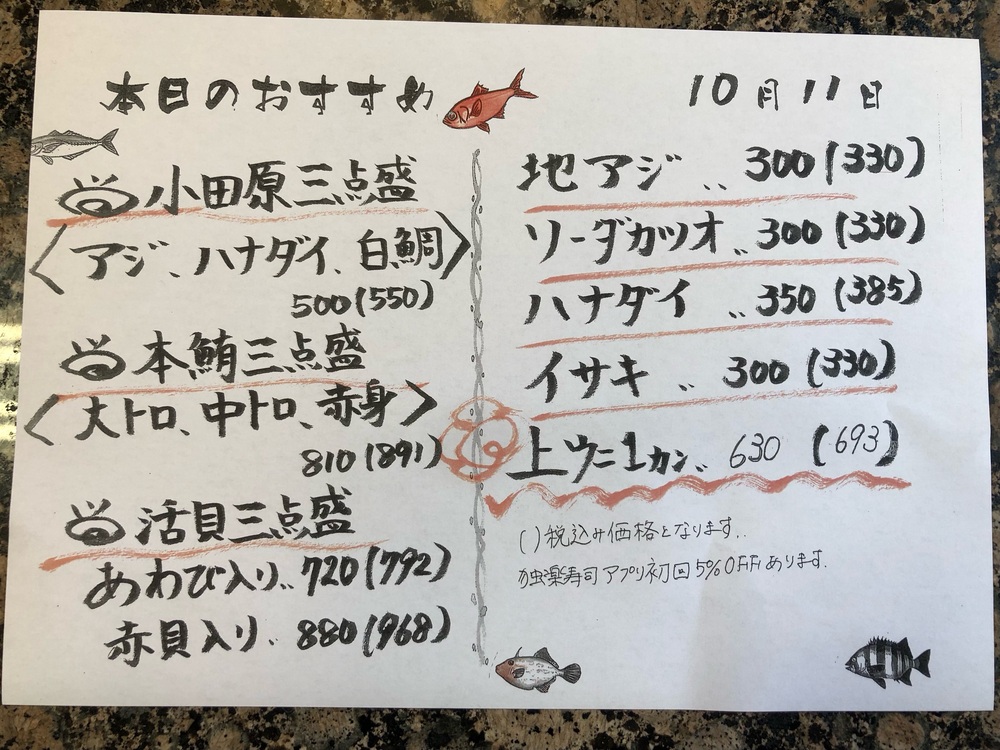 本日のおすすめ
10月11日
小田原三点盛
〈アジ、ハナダイ、白鯛〉
500(550)
本鮪三点盛
〈大トロ、中トロ、赤身〉
810(891)
活貝三点盛
あわび入り‥720(792)
赤貝入り‥880(968)
地アジ‥300(330)
ソーダカツオ‥300(330)
ハナダイ‥350(385)
イサキ‥300(330)
上ウニ1カン‥630(693)
( )税込み価格となります‥
独楽寿司アプリ初回5%OFFあります.